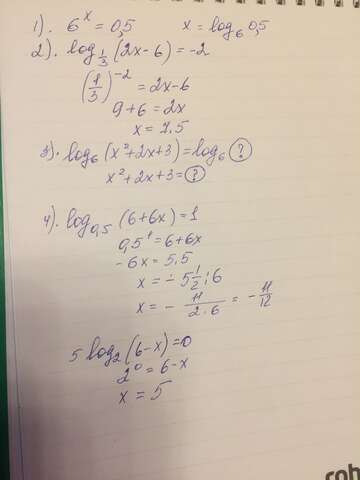 1). 6^x = 0,5 x = log₆ 0,5
2). log_{1/3} (2x-6) = -2
(1/3)^{-2} = 2x-6
9+6 = 2x
x = 7.5
3). log₆ (x²+2x+3) = log₆ ?
x²+2x+3 = ?
4). log_{0,5} (6+6x) = 1
0,5¹ = 6+6x
-6x = 5,5
x = -5 1/2 : 6
x = - 11/(2·6) = - 11/12
5 log₂ (6-x) = 0
2⁰ = 6-x
x = 5